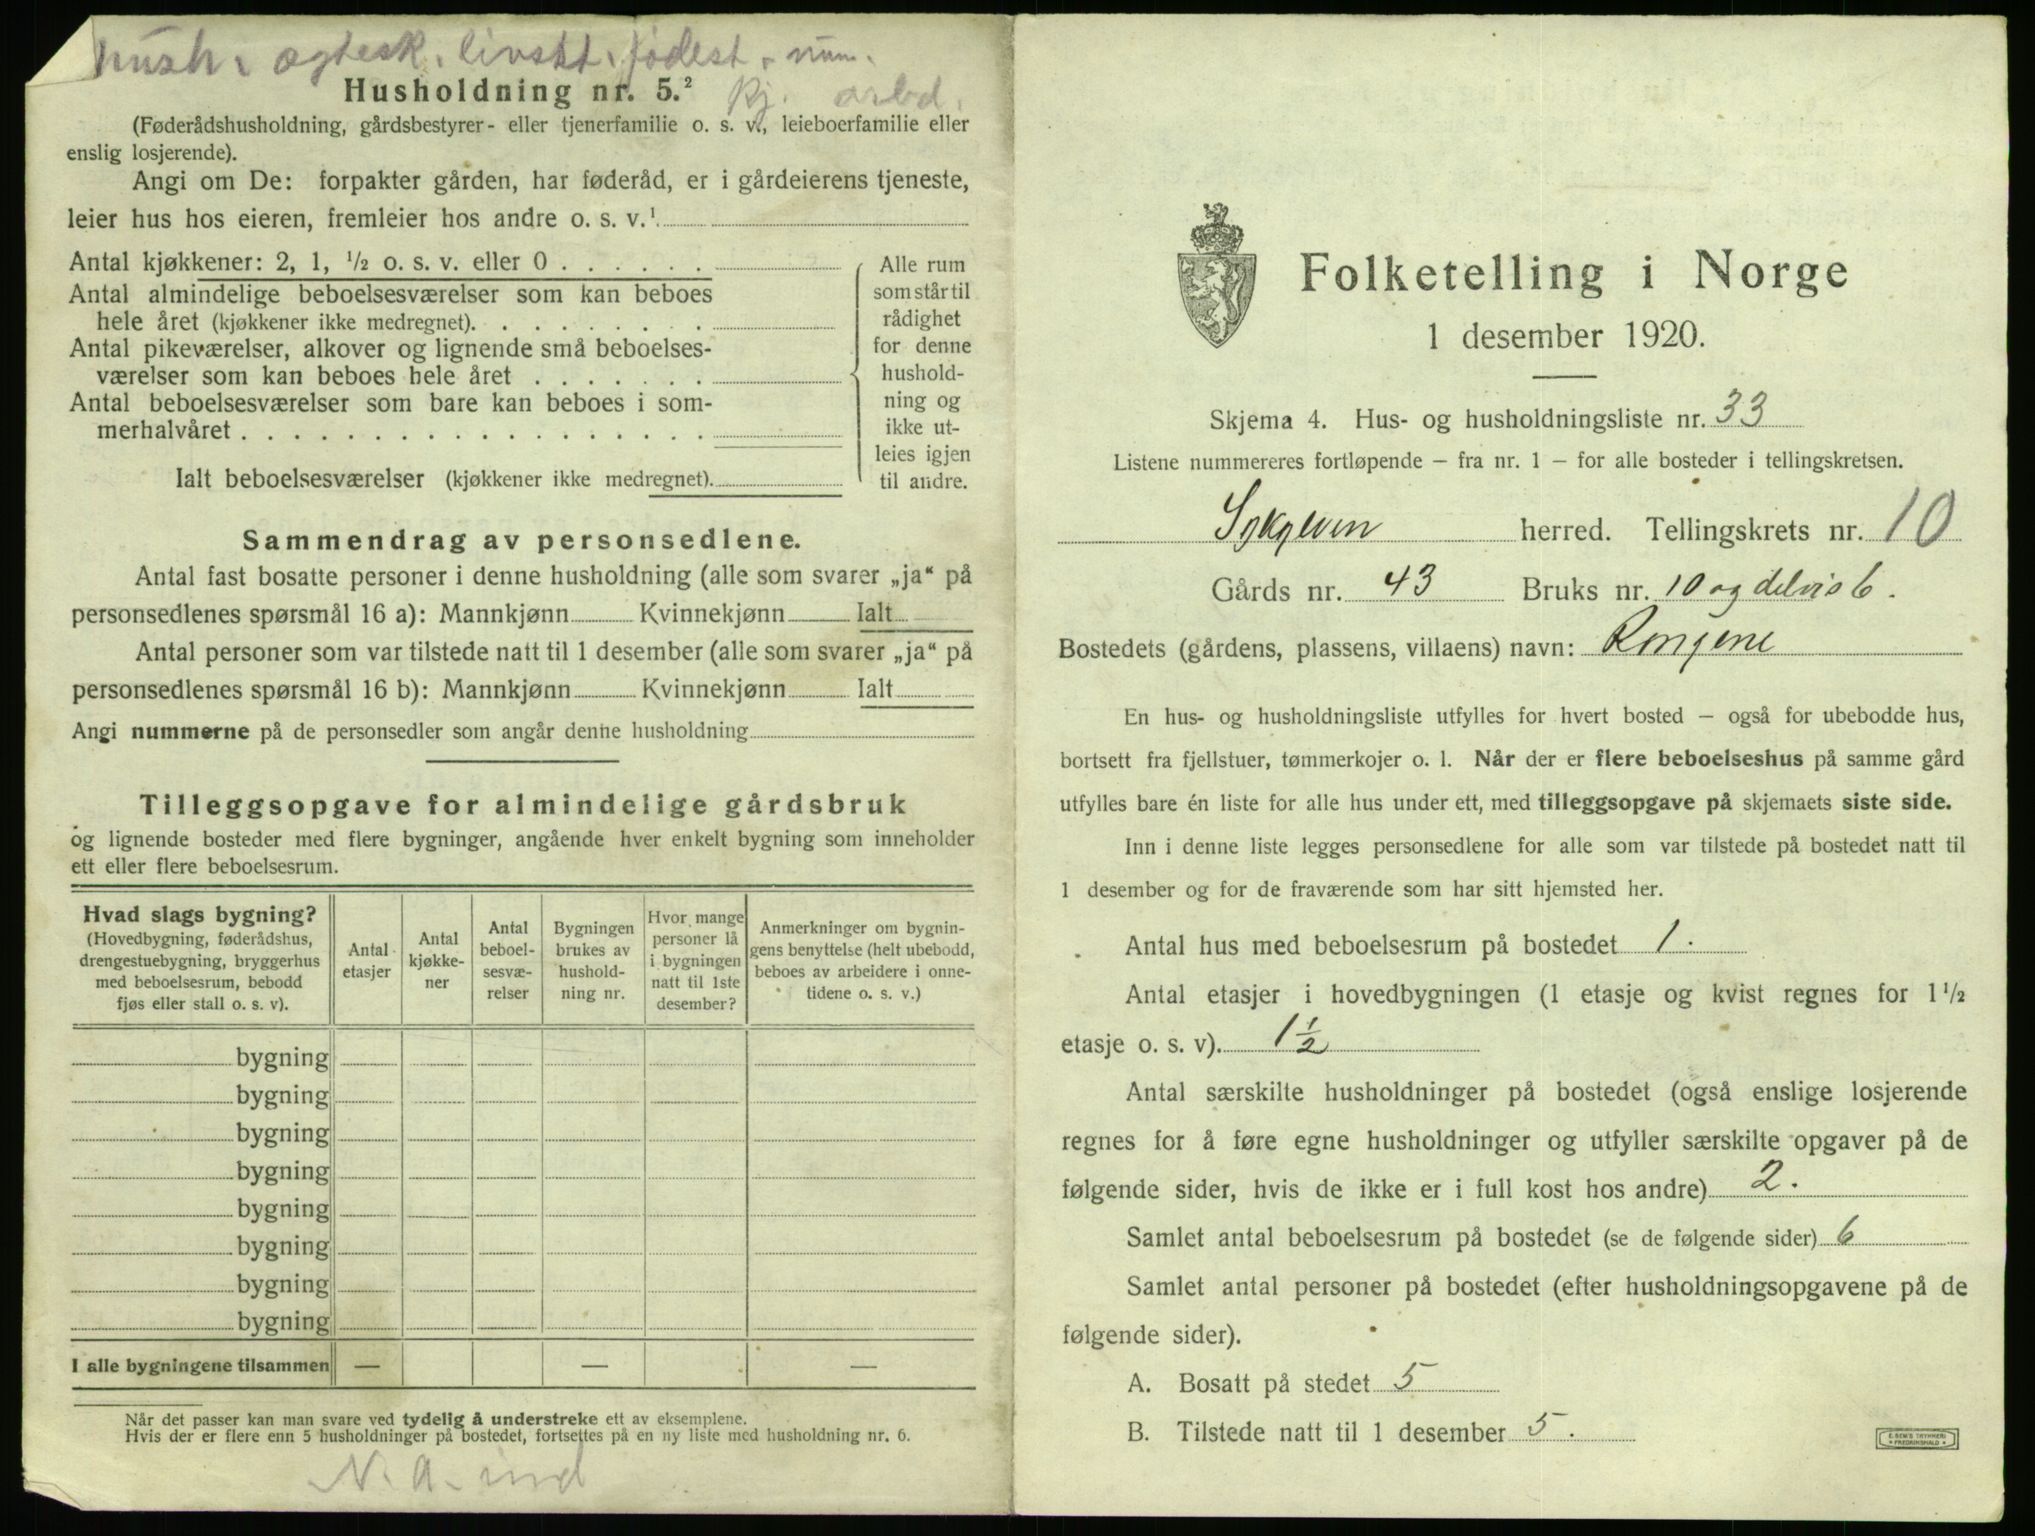 hush. ogtesk. livsst. fødest. num.
kj. arbd.
Husholdning nr. 5.²
(Føderådshusholdning, gårdsbestyrer- eller tjenerfamilie o. s. v., leieboerfamilie eller
enslig losjerende).
Angi om De: forpakter gården, har føderåd, er i gårdeierens tjeneste,
leier hus hos eieren, fremleier hos andre o. s. v.¹
Antal kjøkkener: 2, 1, ½ o. s. v. eller 0 . . . . . .
Antal almindelige beboelsesværelser som kan beboes
hele året (kjøkkener ikke medregnet). . . . . . . . .
Antal pikeværelser, alkover og lignende små beboelses-
værelser som kan beboes hele året . . . . . . .
Antal beboelsesværelser som bare kan beboes i som-
merhalvåret . . . . . . . . . . . . . . . . . .
Ialt beboelsesværelser (kjøkkener ikke medregnet).
Alle rum
som står til
rådighet
for denne
hushold-
ning og
ikke ut-
leies igjen
til andre.
Sammendrag av personsedlene.
Antal fast bosatte personer i denne husholdning (alle som svarer „ja“ på
personsedlenes spørsmål 16 a): Mannkjønn Kvinnekjønn Ialt
Antal personer som var tilstede natt til 1 desember (alle som svarer „ja“ på
personsedlenes spørsmål 16 b): Mannkjønn Kvinnekjønn Ialt
Angi nummerne på de personsedler som angår denne husholdning
Tilleggsopgave for almindelige gårdsbruk
og lignende bosteder med flere bygninger, angående hver enkelt bygning som inneholder
ett eller flere beboelsesrum.
Hvad slags bygning?
(Hovedbygning, føderådshus,
drengestuebygning, bryggerhus
med beboelsesrum, bebodd
fjøs eller stall o. s. v).
Antal
etasjer
Antal
kjøkke-
ner
Antal
beboel-
sesvæ-
relser
Bygningen
brukes av
hushold-
ning nr.
Hvor mange
personer lå
i bygningen
natt til 1ste
desember?
Anmerkninger om bygnin-
gens benyttelse (helt ubebodd,
beboes av arbeidere i onne-
tidene o. s. v.)
bygning
bygning
bygning
bygning
bygning
bygning
bygning
bygning
I alle bygningene tilsammen — — —
Når det passer kan man svare ved tydelig å understreke ett av eksemplene.
Hvis der er flere enn 5 husholdninger på bostedet, fortsettes på en ny liste med husholdning nr. 6.
N. A. ind
Folketelling i Norge
1 desember 1920.
Skjema 4. Hus- og husholdningsliste nr. 33
Listene nummereres fortløpende – fra nr. 1 – for alle bosteder i tellingskretsen.
Sykylven herred. Tellingskrets nr. 10
Gårds nr. 43 Bruks nr. 10 og delvis 6.
Bostedets (gårdens, plassens, villaens) navn: Ringene
En hus- og husholdningsliste utfylles for hvert bosted – også for ubebodde hus,
bortsett fra fjellstuer, tømmerkojer o. l. Når der er flere beboelseshus på samme gård
utfylles bare én liste for alle hus under ett, med tilleggsopgave på skjemaets siste side.
Inn i denne liste legges personsedlene for alle som var tilstede på bostedet natt til
1 desember og for de fraværende som har sitt hjemsted her.
Antal hus med beboelsesrum på bostedet 1.
Antal etasjer i hovedbygningen (1 etasje og kvist regnes for 1½
etasje o. s. v). 1½
Antal særskilte husholdninger på bostedet (også enslige losjerende
regnes for å føre egne husholdninger og utfyller særskilte opgaver på de
følgende sider, hvis de ikke er i full kost hos andre) 2.
Samlet antal beboelsesrum på bostedet (se de følgende sider) 6
Samlet antal personer på bostedet (efter husholdningsopgavene på de
følgende sider).
A. Bosatt på stedet 5
B. Tilstede natt til 1 desember 5.
E. SEM'S TRYKKERI
FREDRIKSHALD